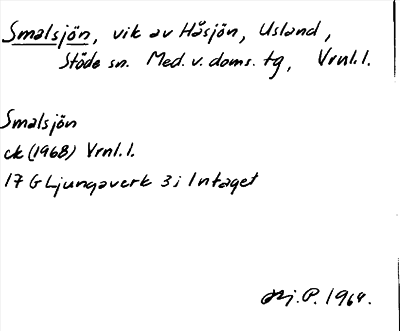 Smalsjön, vik av Håsjön, Usland,
Stöde sn. Med. v. doms. tg, Vrnl. l.
Smalsjön
ck (1968) Vrnl. l.
17 G Ljungaverk 3 i Intaget
P. 1964.